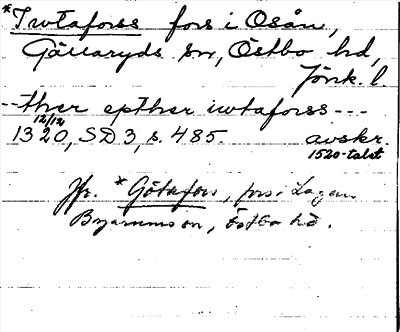 *Iwtaforss fors i Osån,
Gällaryds sn, Östbo hd,
Jönk. l.
---ther epther iwtaforss---
12/12
1320, SD 3, s. 485. avskr.
1520-talet
Jfr. *Götafors, fors i Lagan
Byarums sn, Östbo hd.